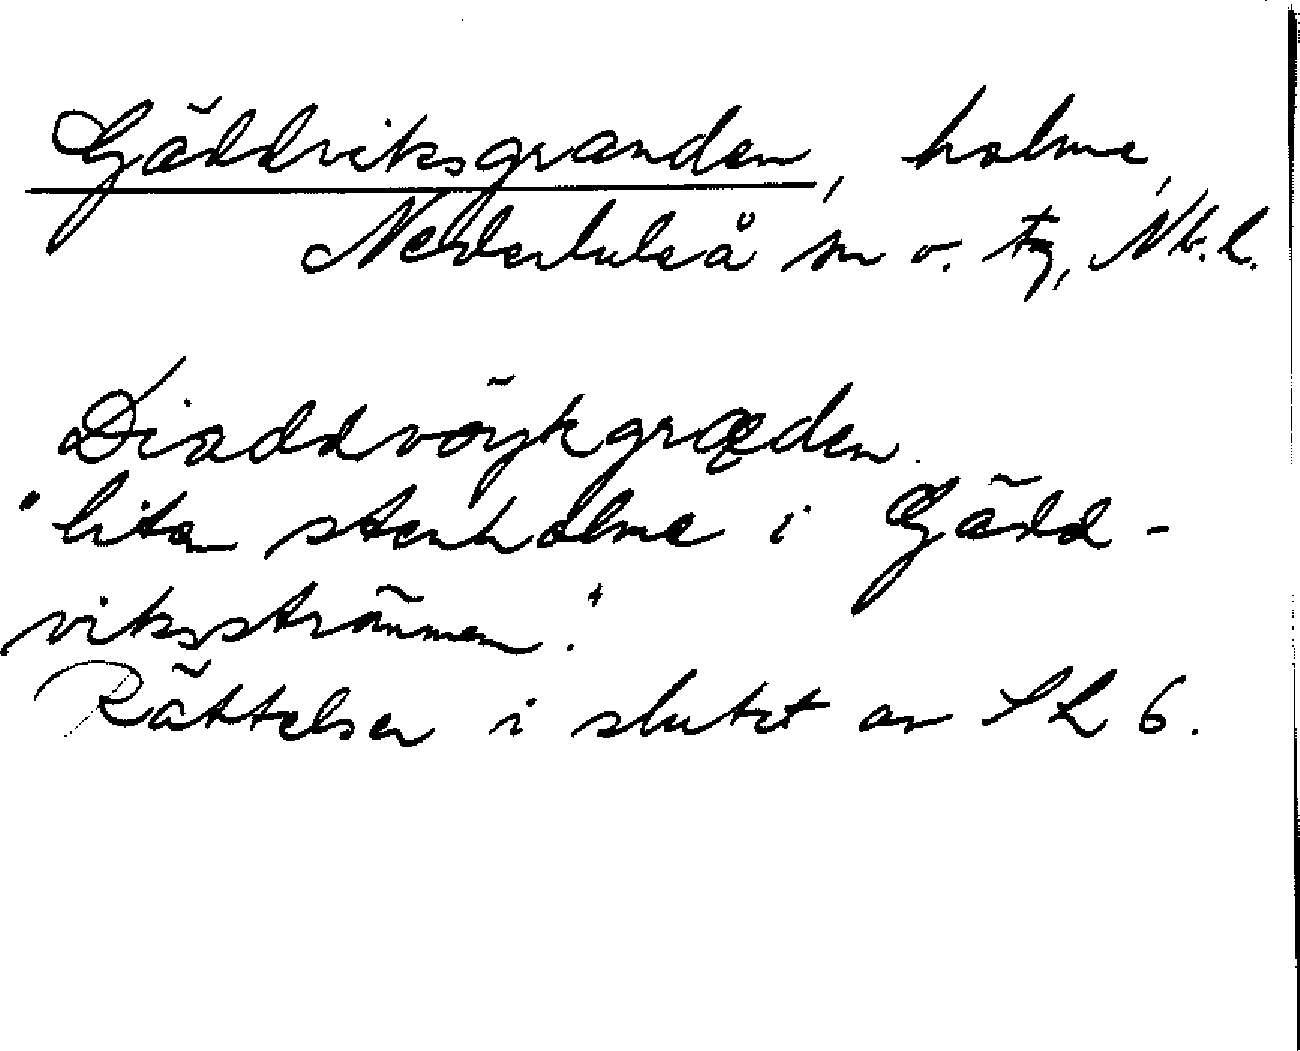 Gäddviksgranden, holme,
Nederluleå sn o. tg, Nb.l.
Diäddvöykgræden.
"liten stenholme i Gädd-
viksströmmen."
Rättelser i slutet av SL 6.